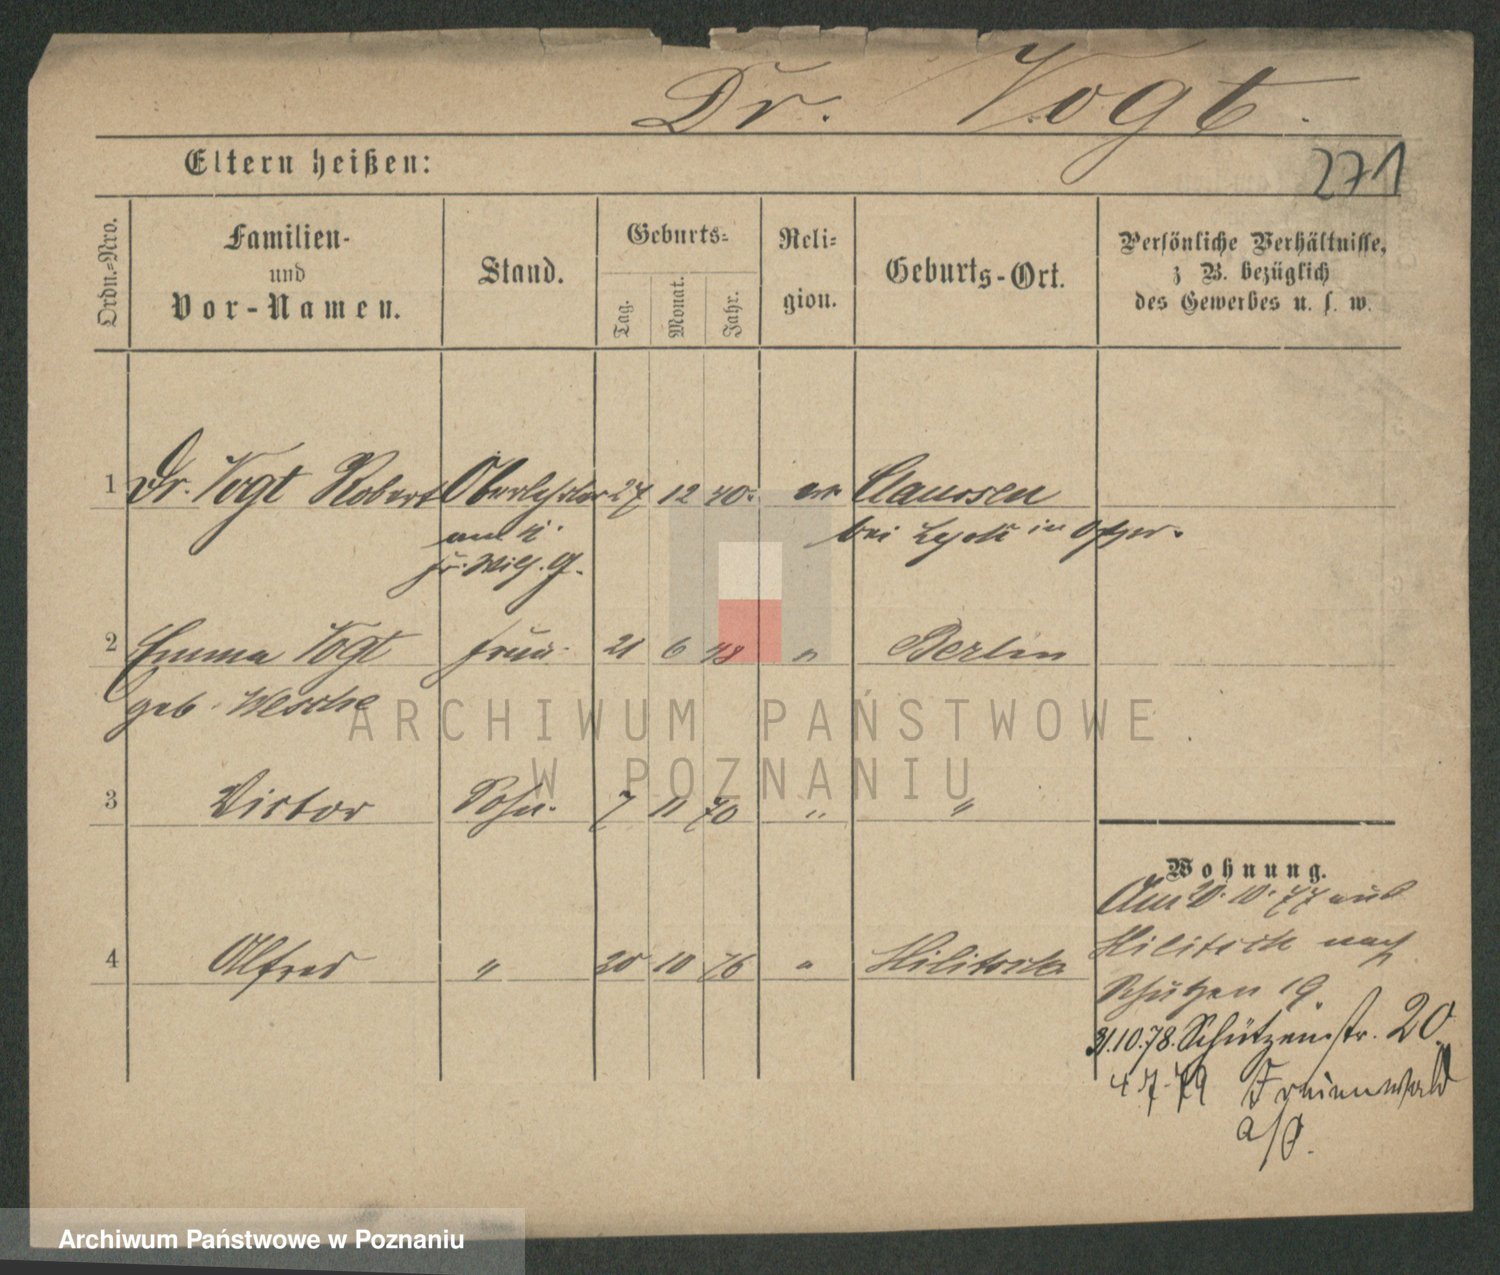 Dr. Vogt.
Eltern heißen:
271
Ordn.-Nro.
Familien-
und
Vor-Namen.
Stand.
Geburts-
Tag.
Monat.
Jahr.
Reli-
gion.
Geburts-Ort.
Persönliche Verhältnisse,
z B. bezüglich
des Gewerbes u. s. w.
1 Dr. Vogt Robert Oberlehrer 27 12 40. ev. Claussen
am K. bei Lyck in Ostpr.
Fr. Wilh. G.
2 Emma Vogt Frau 21 6 48 " Berlin
geb. Wesche
3 Victor Sohn. 7 11 70 " "
4 Alfred " 20 10 76 "
Wohnung.
Am 20. 10. 77 aus
nach
Schützen 19.
31.10.78. Schützenstr. 20.
4.7.79 Freienwald
a/O.
ARCHIWUM PAŃSTWOWE
W POZNANIU
Archiwum Państwowe w Poznaniu